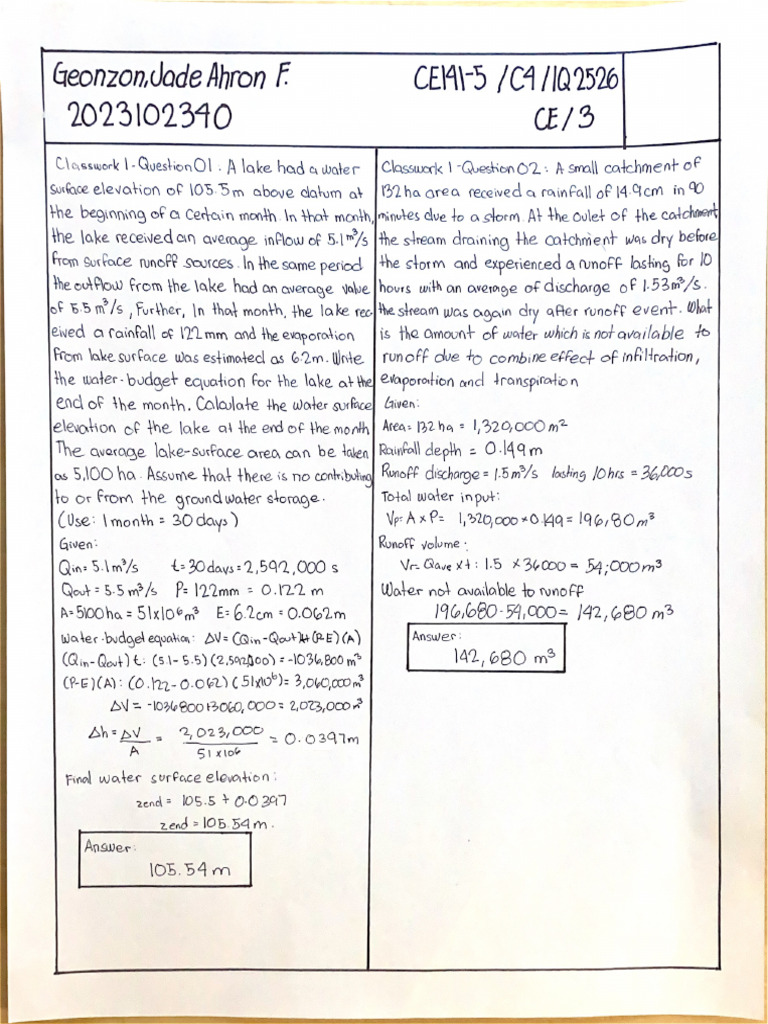 Geonzon, Jade Ahron F.
2023102340
CE141-5 / C4 / 1Q2526
CE / 3
Classwork 1 - Question 01 : A lake had a water
surface elevation of 105.5m above datum at
the beginning of a certain month. In that month,
the lake received an average inflow of 5.1 m³/s
from surface runoff sources. In the same period
the outflow from the lake had an average value
of 5.5 m³/s , Further, In that month, the lake rec-
eived a rainfall of 122 mm and the evaporation
from lake surface was estimated as 6.2m. Write
the water-budget equation for the lake at the
end of the month. Calculate the water surface
elevation of the lake at the end of the month
The average lake-surface area can be taken
as 5,100 ha. Assume that there is no contributing
to or from the ground water storage.
(Use: 1 month = 30 days)
Given:
Qin = 5.1 m³/s t = 30 days = 2,592,000 s
Qout = 5.5 m³/s P = 122mm = 0.122 m
A = 5100 ha = 51x10⁶ m³ E = 6.2cm = 0.062m
Water-budget equation: ΔV = (Qin - Qout)t + (P-E)(A)
(Qin - Qout) t: (5.1 - 5.5)(2,592,000) = -1036,800 m³
(P-E)(A): (0.122 - 0.062)(51x10⁶) = 3,060,000 m³
ΔV = -1036800+3060,000 = 2,023,000 m³
Δh = ΔV/A = 2,023,000/51x10⁶ = 0.0397m
Final water surface elevation:
zend = 105.5 + 0.0397
zend = 105.54 m.
Answer:
105.54 m
Classwork 1 - Question 02 : A small catchment of
132 ha area received a rainfall of 14.9cm in 90
minutes due to a storm. At the oulet of the catchment
the stream draining the catchment was dry before
the storm and experienced a runoff lasting for 10
hours with an average of discharge of 1.53m³/s.
the stream was again dry after runoff event. What
is the amount of water which is not available to
runoff due to combine effect of infiltration,
evaporation and transpiration
Given:
Area = 132 ha = 1,320,000 m²
Rainfall depth = 0.149 m
Runoff discharge = 1.5 m³/s lasting 10 hrs = 36,000 s
Total water input:
Vp = A x P = 1,320,000 x 0.149 = 196,80 m³
Runoff volume:
Vr = Qave x t : 1.5 x 36000 = 54,000 m³
Water not available to runoff
196,680 - 54,000 = 142,680 m³
Answer:
142,680 m³